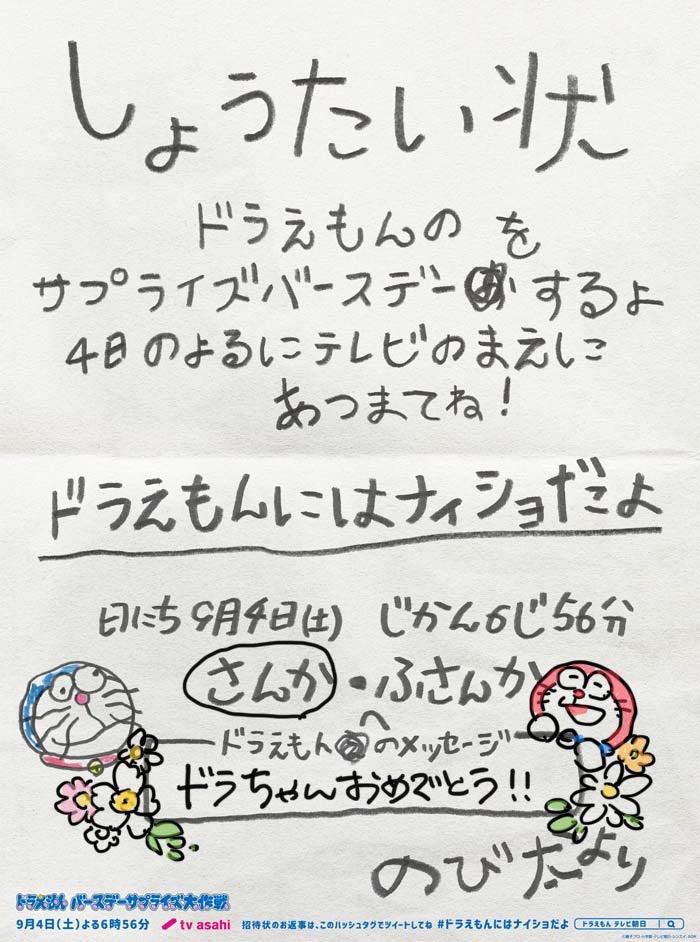 しょうたい状
ドラえもんの を
サプライズバースデー するよ
4日のよるにテレビのまえに
あつまてね！
ドラえもんにはナイショだよ
日にち 9月4日(土) じかん6じ56分
さんか・ふさんか
ドラえもんへのメッセージ
ドラちゃんおめでとう!!
のびたより
ドラえもん バースデーサプライズ大作戦
9月4日(土)よる6時56分 tv asahi 招待状のお返事は、このハッシュタグでツイートしてね #ドラえもんにはナイショだよ ドラえもん テレビ朝日
©藤子プロ・小学館・テレビ朝日・シンエイ・ADK